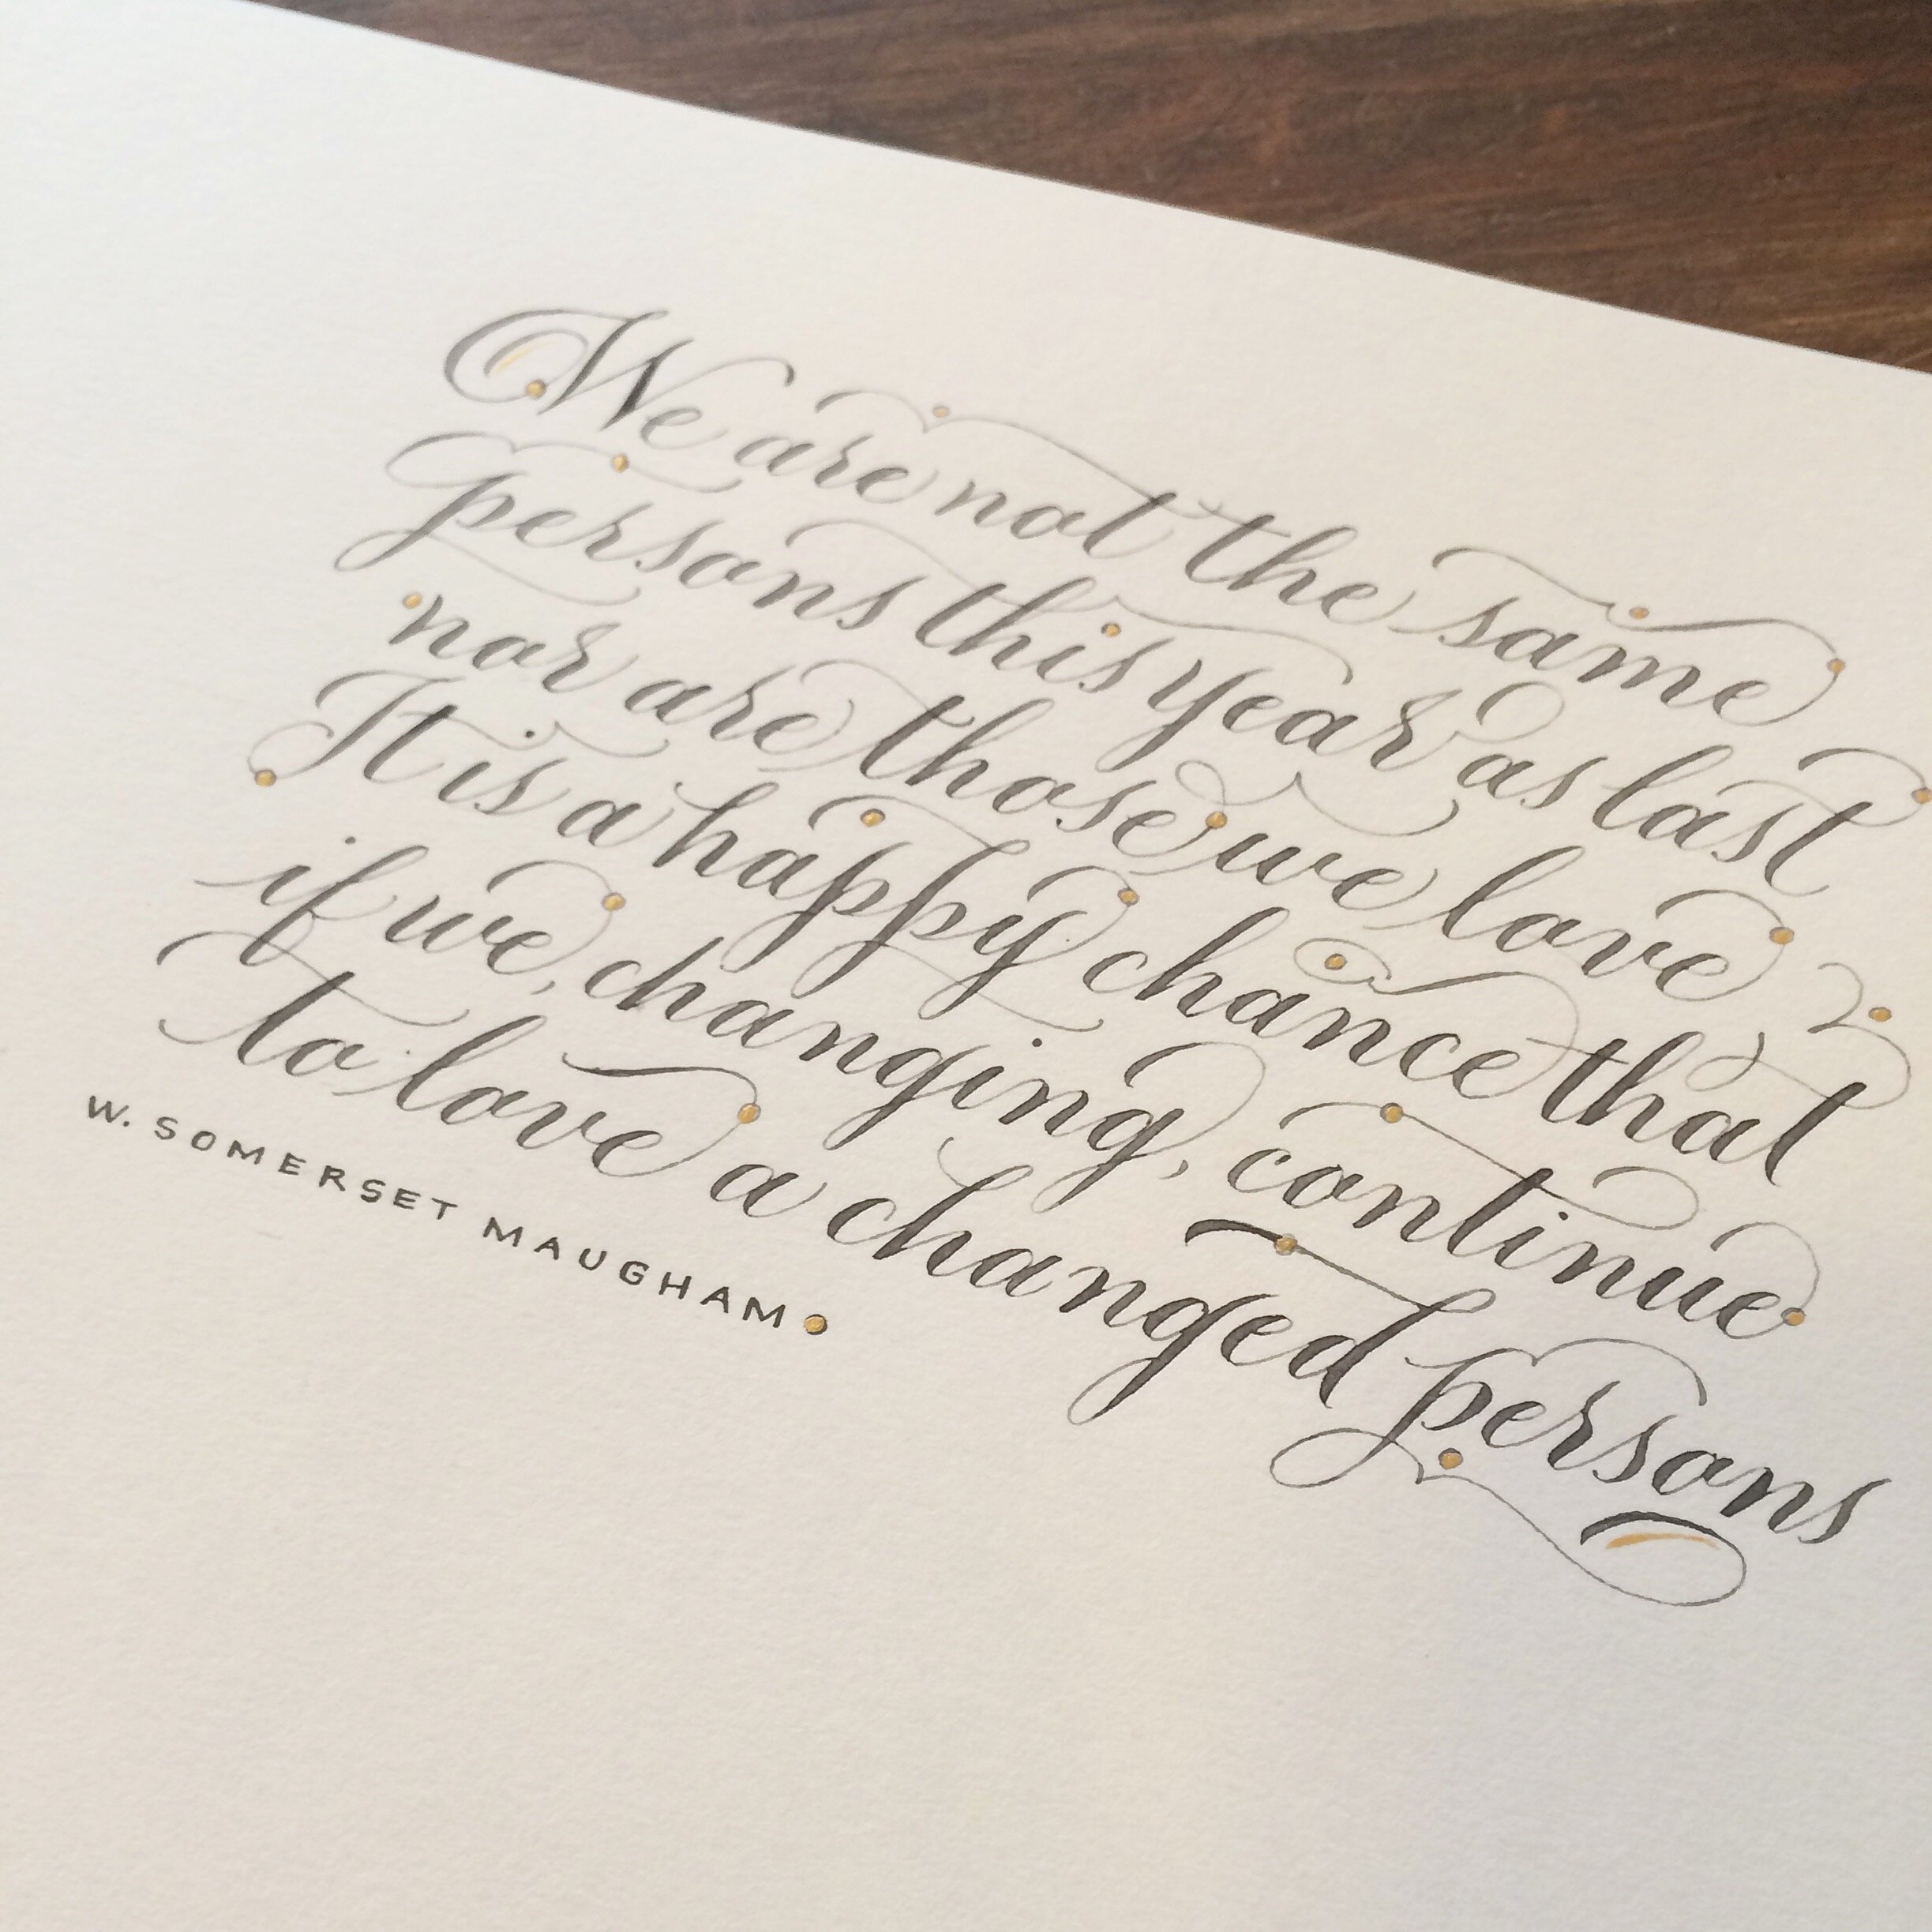 We are not the same
persons this year as last
nor are those we love
It is a happy chance that
if we, changing, continue
to love a changed persons
W. SOMERSET MAUGHAM